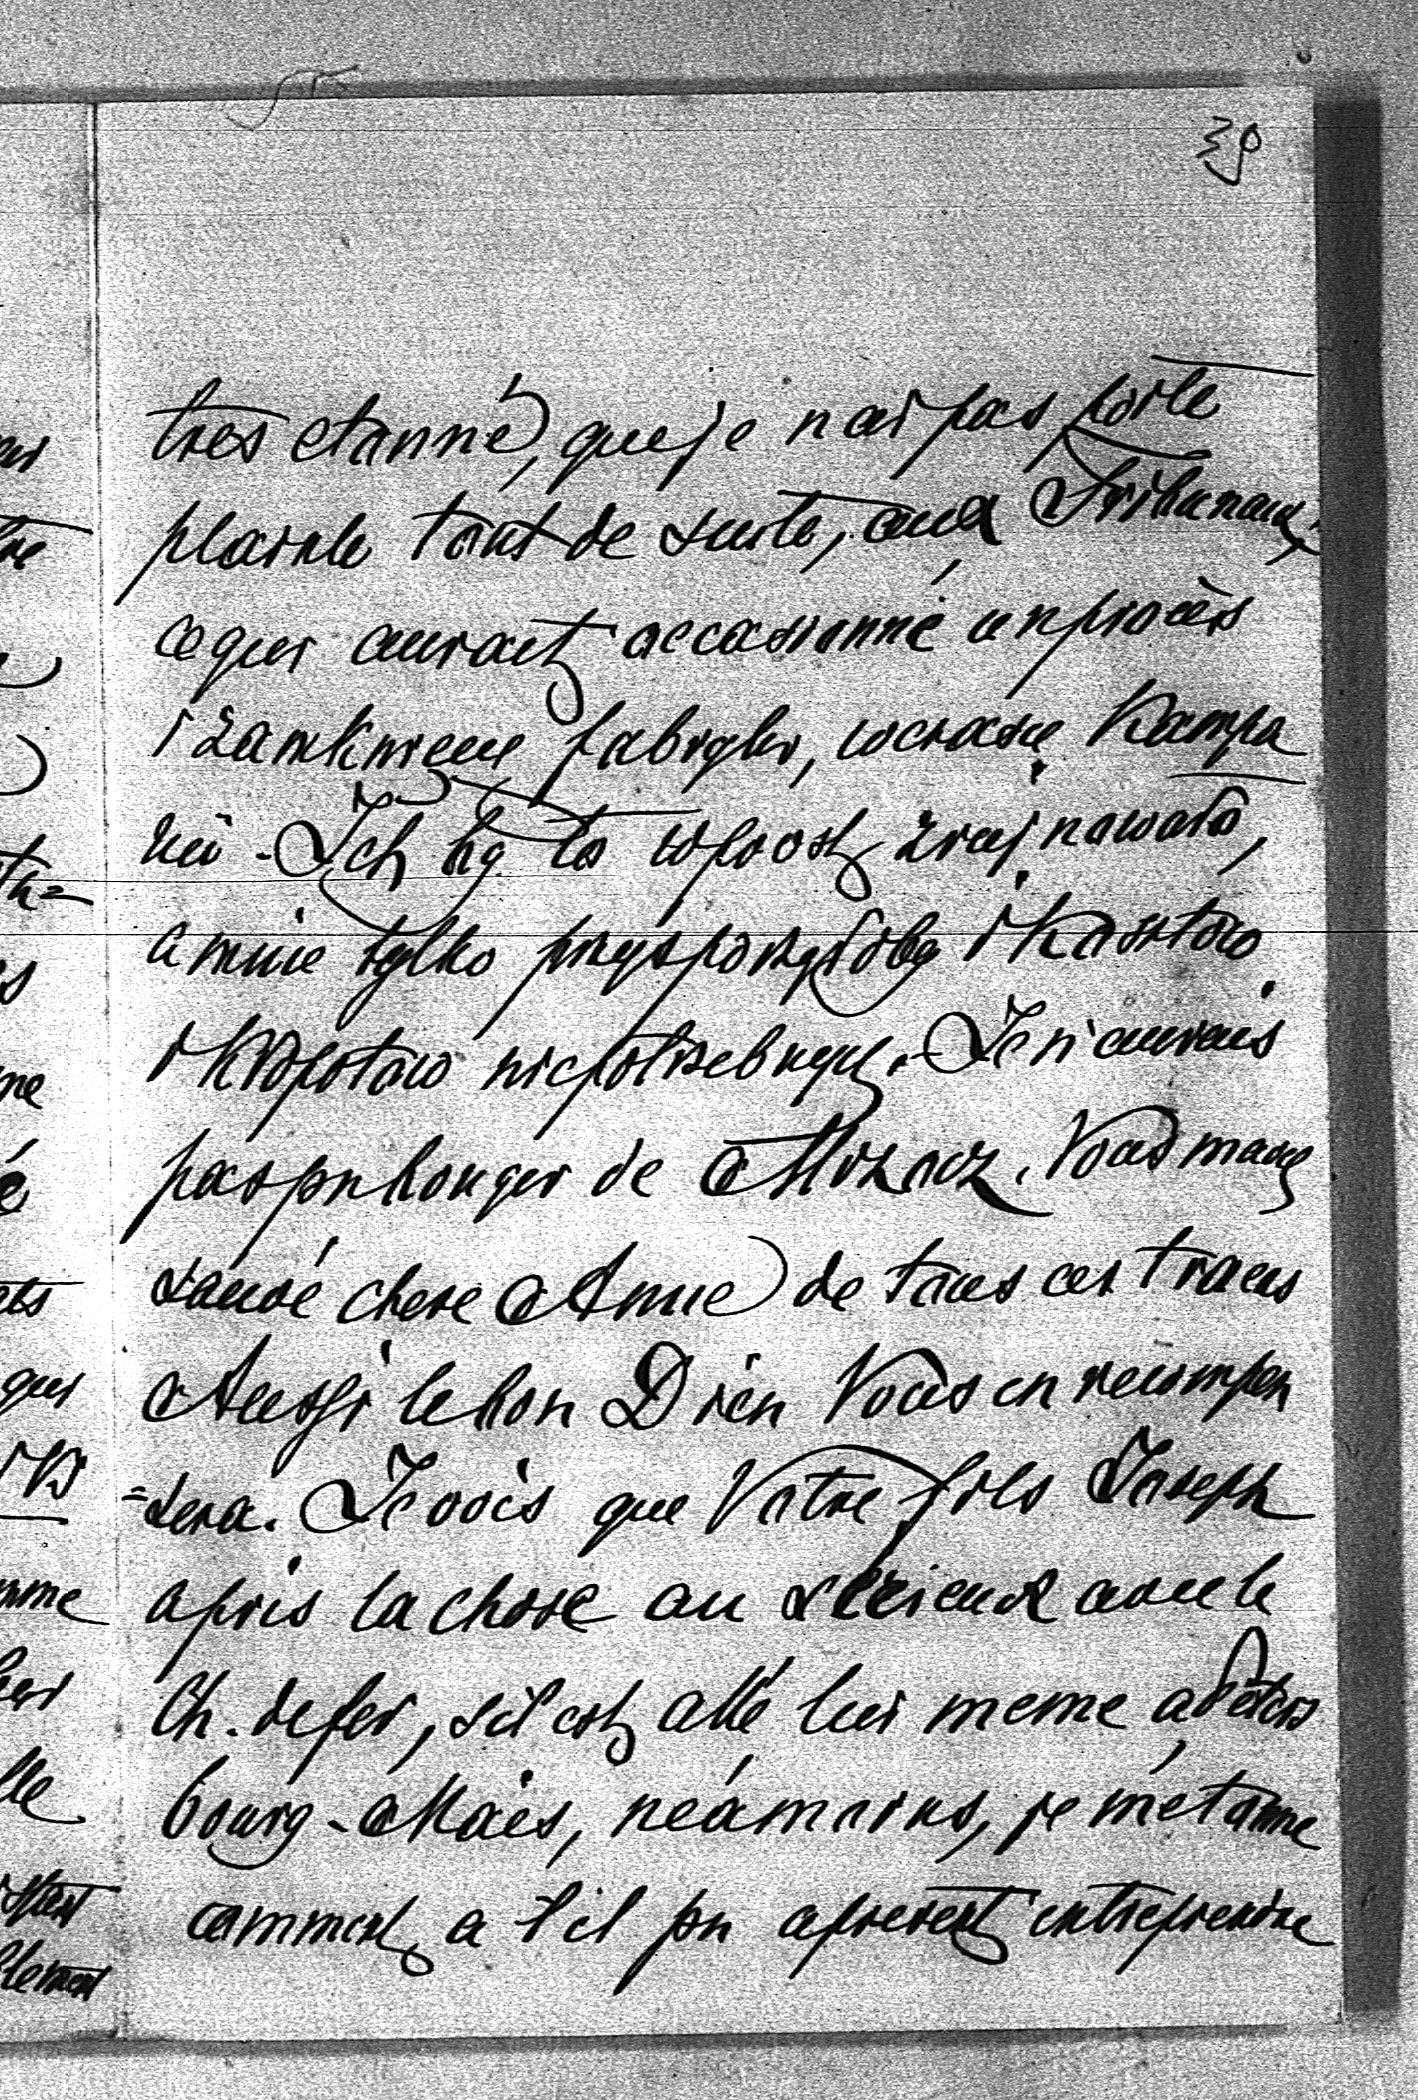 39
très etonné, que je n'ai pas porté
plainte tout de suite, aux Tribunaux,
ce qui aurait occasionné un procès
i zamknięcie fabryki, w czasie Kampa
nii - Ich by to wprost zrujnowało,
a mnie tylko przysporzyłoby i Kosztow
i Kłopotow niepotrzebnych. Je n'aurais
pas pu bouger de Mozncz. Vous m'avez
sauvé chere Amie de tous ces tracas
Aussi le bon Dieu Vous en recompen
=sera. Je vois que Votre fils Joseph
a pris la chose au serieux avec le
Ch. de fer, s'il est allé lui meme a Peters
bourg - Mais, néamoins, je m'étonne
comment a t'il pu apresent entreprendre